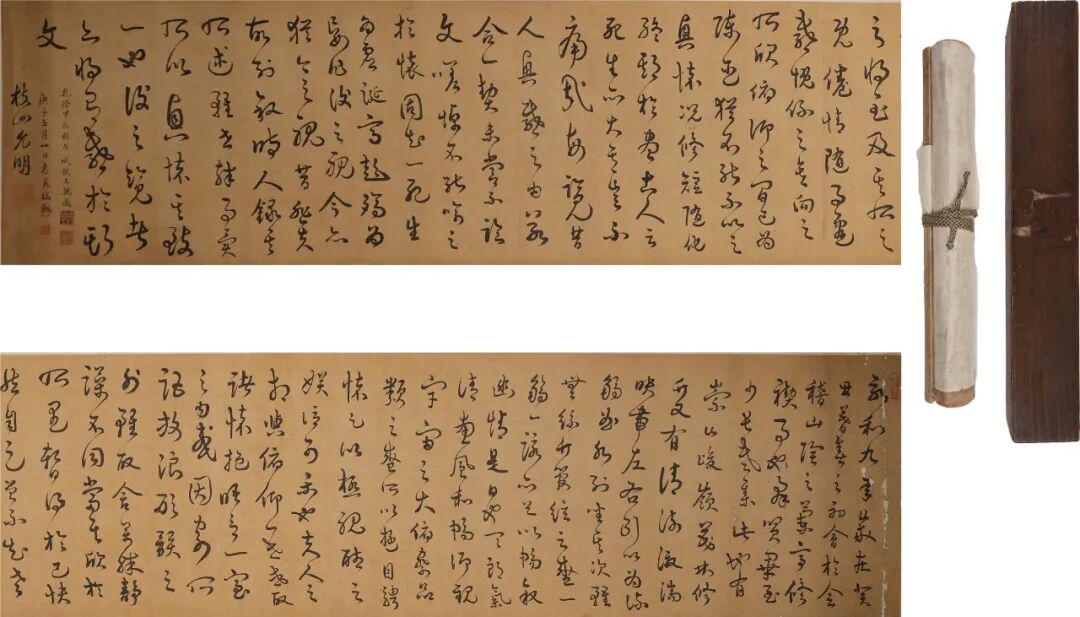 永和九年歲在癸
丑暮春之初會於會
稽山陰之蘭亭修
禊事也群賢畢至
少長咸集此地有
崇山峻嶺茂林修
竹又有清流激湍
映帶左右引以為流
觴曲水列坐其次雖
無絲竹管絃之盛一
觴一詠亦足以暢敘
幽情是日也天朗氣
清惠風和暢仰觀
宇宙之大俯察品
類之盛所以遊目騁
懷足以極視聽之
娛信可樂也夫人之
相與俯仰一世或取
諸懷抱晤言一室
之內或因寄所
託放浪形骸之
外雖取舍萬殊靜
躁不同當其欣於
所遇暫得於己快
然自足曾不知老
之將至及其所之
既倦情隨事遷
感慨係之矣向之
所欣俯仰之間已為
陳迹猶不能不以之
興懷況修短隨化
終期於盡古人云
死生亦大矣豈不
痛哉每覽昔
人興感之由若
合一契未嘗不臨
文嗟悼不能喻之
於懷固知一死生
為虛誕齊彭殤為
妄作後之視今亦
猶今之視昔悲夫
故列敘時人錄其
所述雖世殊事異
所以興懷其致
一也後之覽者
亦將有感於斯
文
乾隆甲 月 成親王觀
庚子五月 日
枝山允明